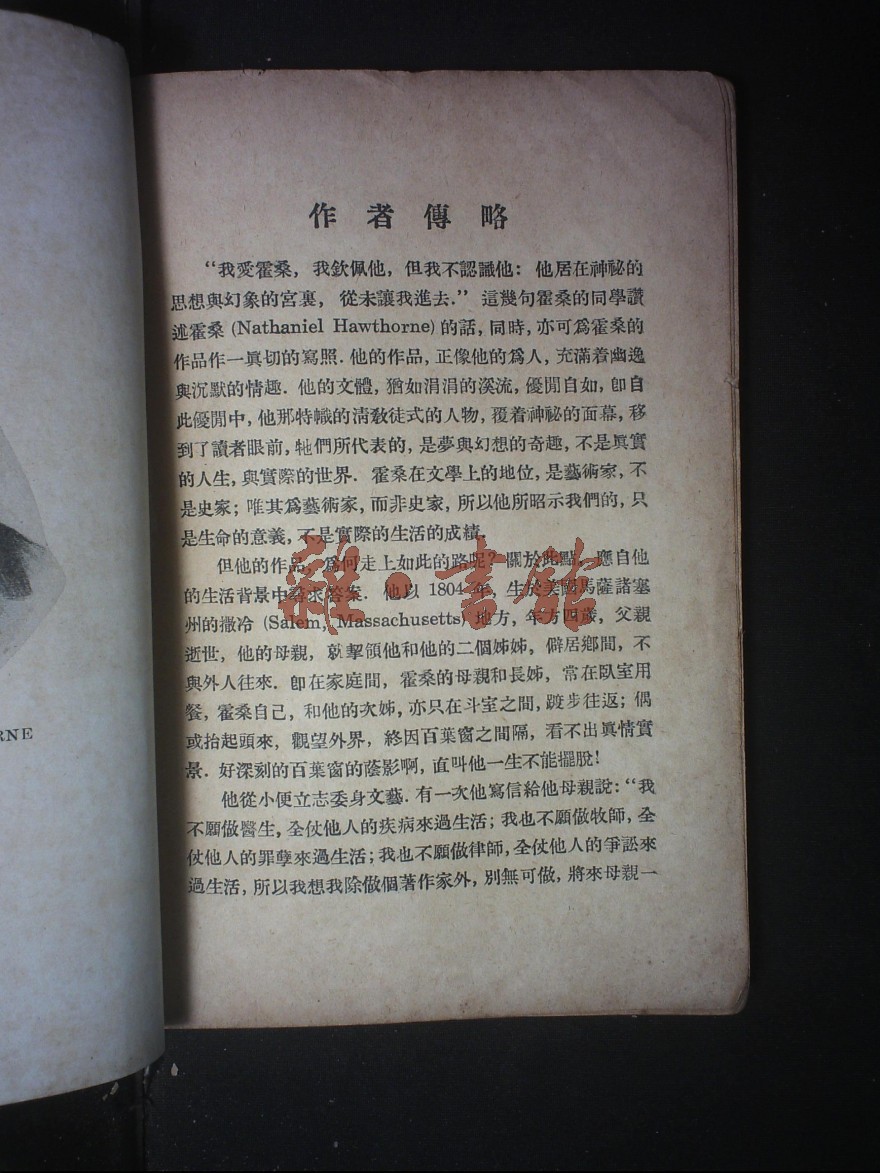 作者傳略
“我愛霍桑，我欽佩他，但我不認識他：他居在神祕的
思想與幻象的宮裏，從未讓我進去.”這幾句霍桑的同學讚
述霍桑 (Nathaniel Hawthorne) 的話，同時，亦可爲霍桑的
作品作一眞切的寫照．他的作品，正像他的爲人，充滿着幽逸
與沉默的情趣．他的文體，猶如涓涓的溪流，優閒自如，卽自
此優閒中，他那特幟的淸敎徒式的人物，覆着神祕的面幕，移
到了讀者眼前，牠們所代表的，是夢與幻想的奇趣，不是眞實
的人生，與實際的世界．霍桑在文學上的地位，是藝術家，不
是史家；唯其爲藝術家，而非史家，所以他所昭示我們的，只
是生命的意義，不是實際的生活的成績．
但他的作品，爲何走上如此的路呢？關於此點，應自他
的生活背景中尋求答案．他以 1804 年，生於美國馬薩諸塞
州的撒冷 (Salem, Massachusetts) 地方，年方四歲，父親
逝世，他的母親，就挈領他和他的二個姊姊，僻居鄕間，不
與外人往來．卽在家庭間，霍桑的母親和長姊，常在臥室用
餐，霍桑自己，和他的次姊，亦只在斗室之間，踱步往返；偶
或抬起頭來，觀望外界，終因百葉窗之間隔，看不出眞情實
景．好深刻的百葉窗的蔭影啊，直叫他一生不能擺脫！
他從小便立志委身文藝．有一次他寫信給他母親說：“我
不願做醫生，全仗他人的疾病來過生活；我也不願做牧師，全
仗他人的罪孽來過生活；我也不願做律師，全仗他人的爭訟來
過生活，所以我想我除做個著作家外，別無可做，將來母親一
RNE
雜·書館